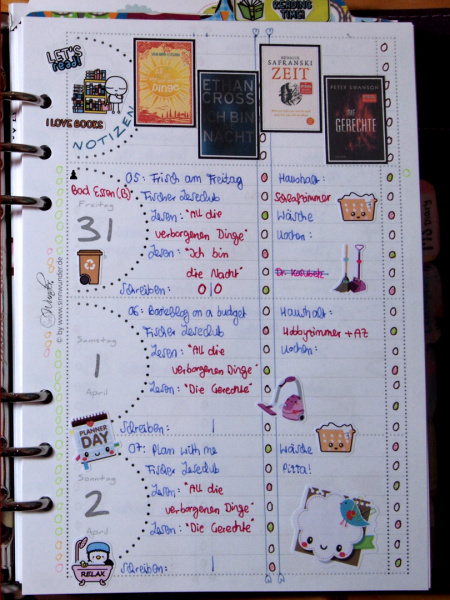 READING TIME!
LET'S READ!
I LOVE BOOKS
NOTIZEN
Dinge
ETHAN
CROSS
ICH BIN
NACHT
SAFRANSKI
ZEIT
PETER SWANSON
DIE
GERECHTE
Bad Essen (B)
Freitag
31
© by www.sinnwunder.de
05: Frisch am Freitag
Tischer Leseclub
Lesen: "All die
verborgenen Dinge"
Lesen: "Ich bin
die Nacht"
Schreiben: 0|0
Haushalt:
Schlafzimmer
Wäsche
Kochen:
Samstag
1
April
06: Bookblog on a budget
Tischer Leseclub
Lesen: "All die
verborgenen Dinge"
Lesen: "Die Gerechte"
Schreiben: |
Haushalt:
Hobbyzimmer + AZ
Kochen:
PLANNER
DAY
Sonntag
2
April
07: Plan with me
Tischer Leseclub
Lesen: "All die
verborgenen Dinge"
Lesen: "Die Gerechte"
Schreiben: |
Wäsche
Pizza!
RELAX
Diary